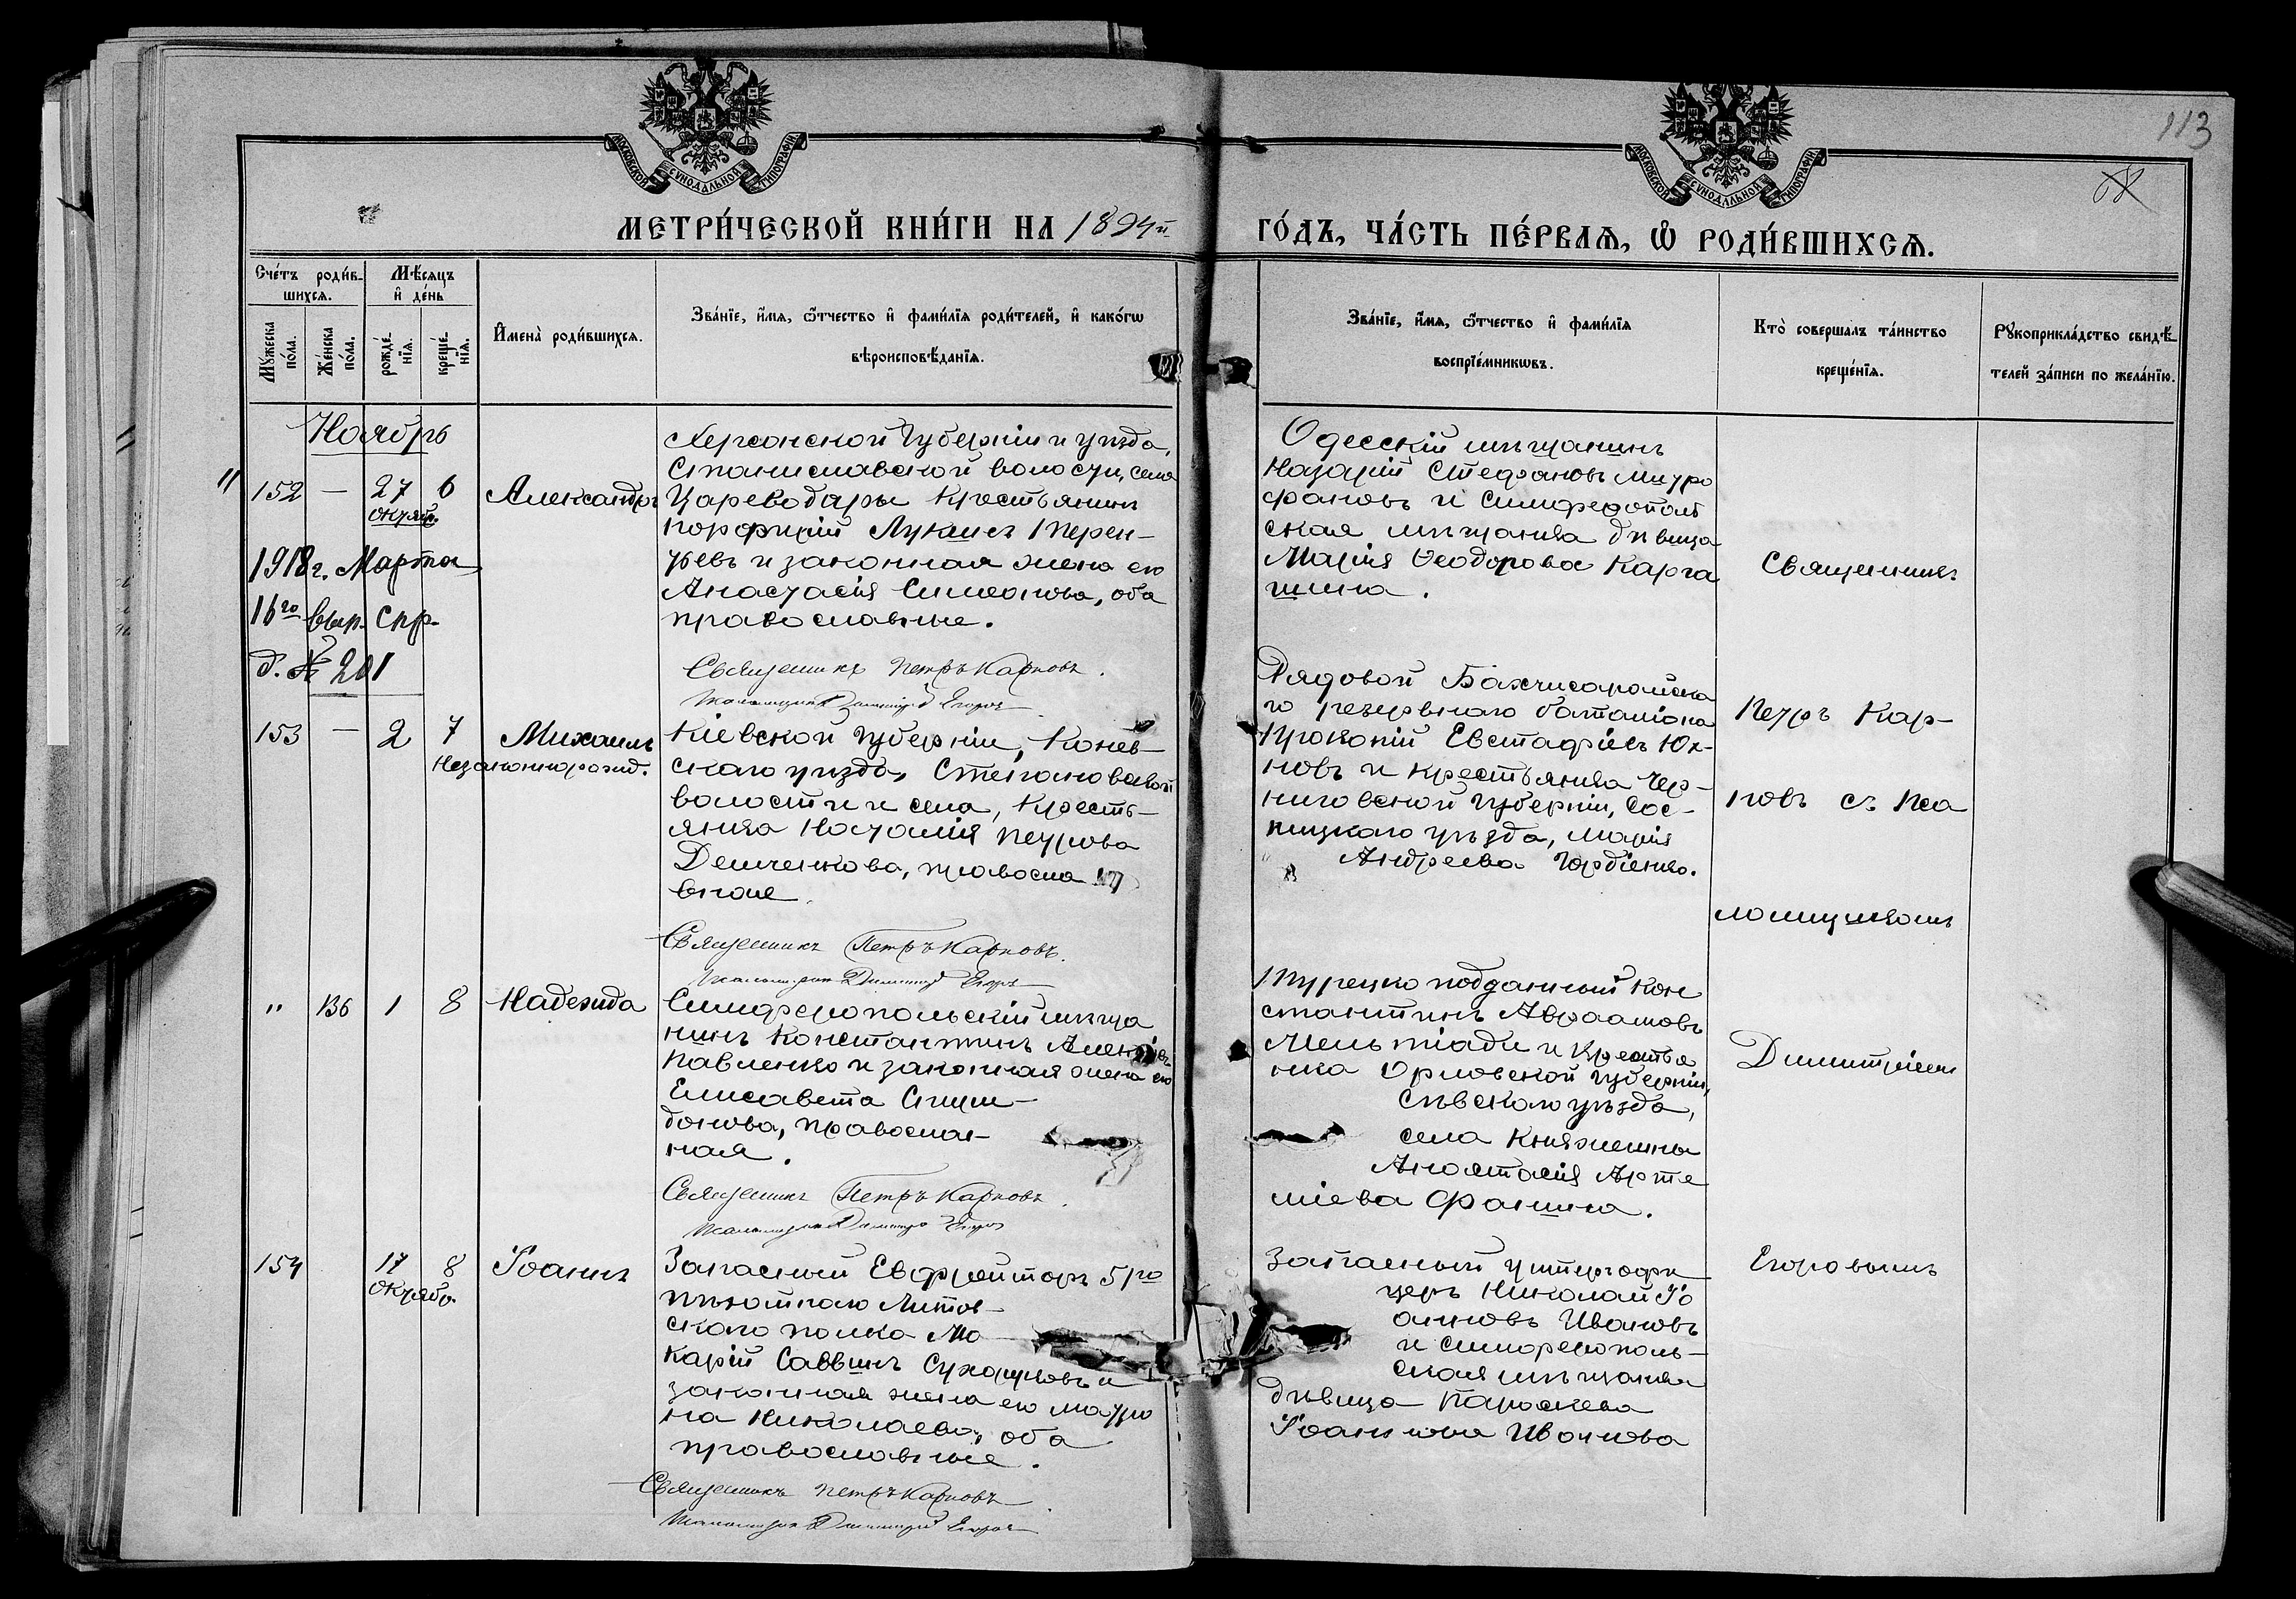 113
МОСКОВСКОЙ СѴНОДАЛЬНОЙ ТИПОГРАФІИ
МОСКОВСКОЙ СѴНОДАЛЬНОЙ ТИПОГРАФІИ
МЕТРИ́ЧЕСКОЙ КНИ́ГИ НА 1894й ГО́ДЪ, ЧА́СТЬ ПЕ́РВАѦ, Ѡ҆ РОДИ́ВШИХСѦ.
Сче́тъ роди́в-
шихсѧ.
Мѣ́сяцъ
и҆ де́нь
Мꙋ́жеска по́ла.
Же́нска по́ла.
рожде́нїѧ.
креще́нїѧ.
И҆мена̀ роди́вшихсѧ.
Зва́нїе, и҆́мѧ, ѻ҆́тчество и҆ фами́лїѧ роди́телей, и҆ како́гѡ
вѣроисповѣ́данїѧ.
Зва́нїе, и҆́мѧ, ѻ҆́тчество и҆ фами́лїѧ
воспрїе́мникѡвъ.
Кто̀ соверша́лъ та́инство
креще́нїѧ.
Рꙋкоприкла́дство свидѣ́-
телей за́писи по жела́нїю.
Ноябрь
152 — 27 6 Александръ
октяб.
1918 г. Марта
16го выд. спр.
д. № 201
Херсонской губерніи и уѣзда,
Станиславской волости, села
Цареводары крестьянинъ
Порфирій Лукинъ Терен-
тьевъ и законная жена его
Анастасія Симеонова, оба
православные.
Священникъ Петръ Карповъ.
Псаломщикъ Димитрій Егоров
Одесскій мѣщанинъ
Назарій Стефановъ Митро
фановъ и Симферополь
ская мѣщанка дѣвица
Марія Ѳеодорова Карта
шина.
Священникъ
153 — 2 7 Михаилъ
Незаконнорожд.
Кіевской губерніи, Канев-
скаго уѣзда, Степановской
волости и села, кресть-
янка Наталія Петрова
Демченкова, правосла
вная.
Священникъ Петръ Карповъ.
Псаломщикъ Димитрій Егоров
Рядовой Бахчисарайска
го резервнаго баталіона
Прокопій Евстафіевъ Юх-
новъ и крестьянка Чер-
ниговской губерніи, Сос-
ницкаго уѣзда, Марія
Андреева Гордіенко.
Петръ Кар-
повъ съ Пса
ломщикомъ
" 136 1 8 Надежда
Симферопольскій мѣща
нинъ Константинъ
Павленко и законная жена его
Елисавета Спири-
донова, православ-
ная.
Священникъ Петръ Карповъ.
Псаломщикъ Димитрій Егоров
Турецко подданный Кон
стантинъ Авраамовъ
Мельтіади и крестья
нка Орловской губерніи,
Сѣвскаго уѣзда,
села Княжнина
Анастасія Арте
міева Фанина.
Димитріемъ
154 17 8 Іоаннъ
октябр.
Запасный Ефрейторъ 5го
пѣхотнаго Литов-
скаго полка Ма
карій Саввинъ и
законная жена его Матро
на Николаева, оба
православные.
Священникъ Петръ Карповъ
Псаломщикъ Димитрій Егоров
Запасный унтеръ офи
церъ Николай Іо
анновъ Ивановъ
и симферополь-
ская мѣщанка
дѣвица Параскева
Іоаннова Иванова
Егоровымъ